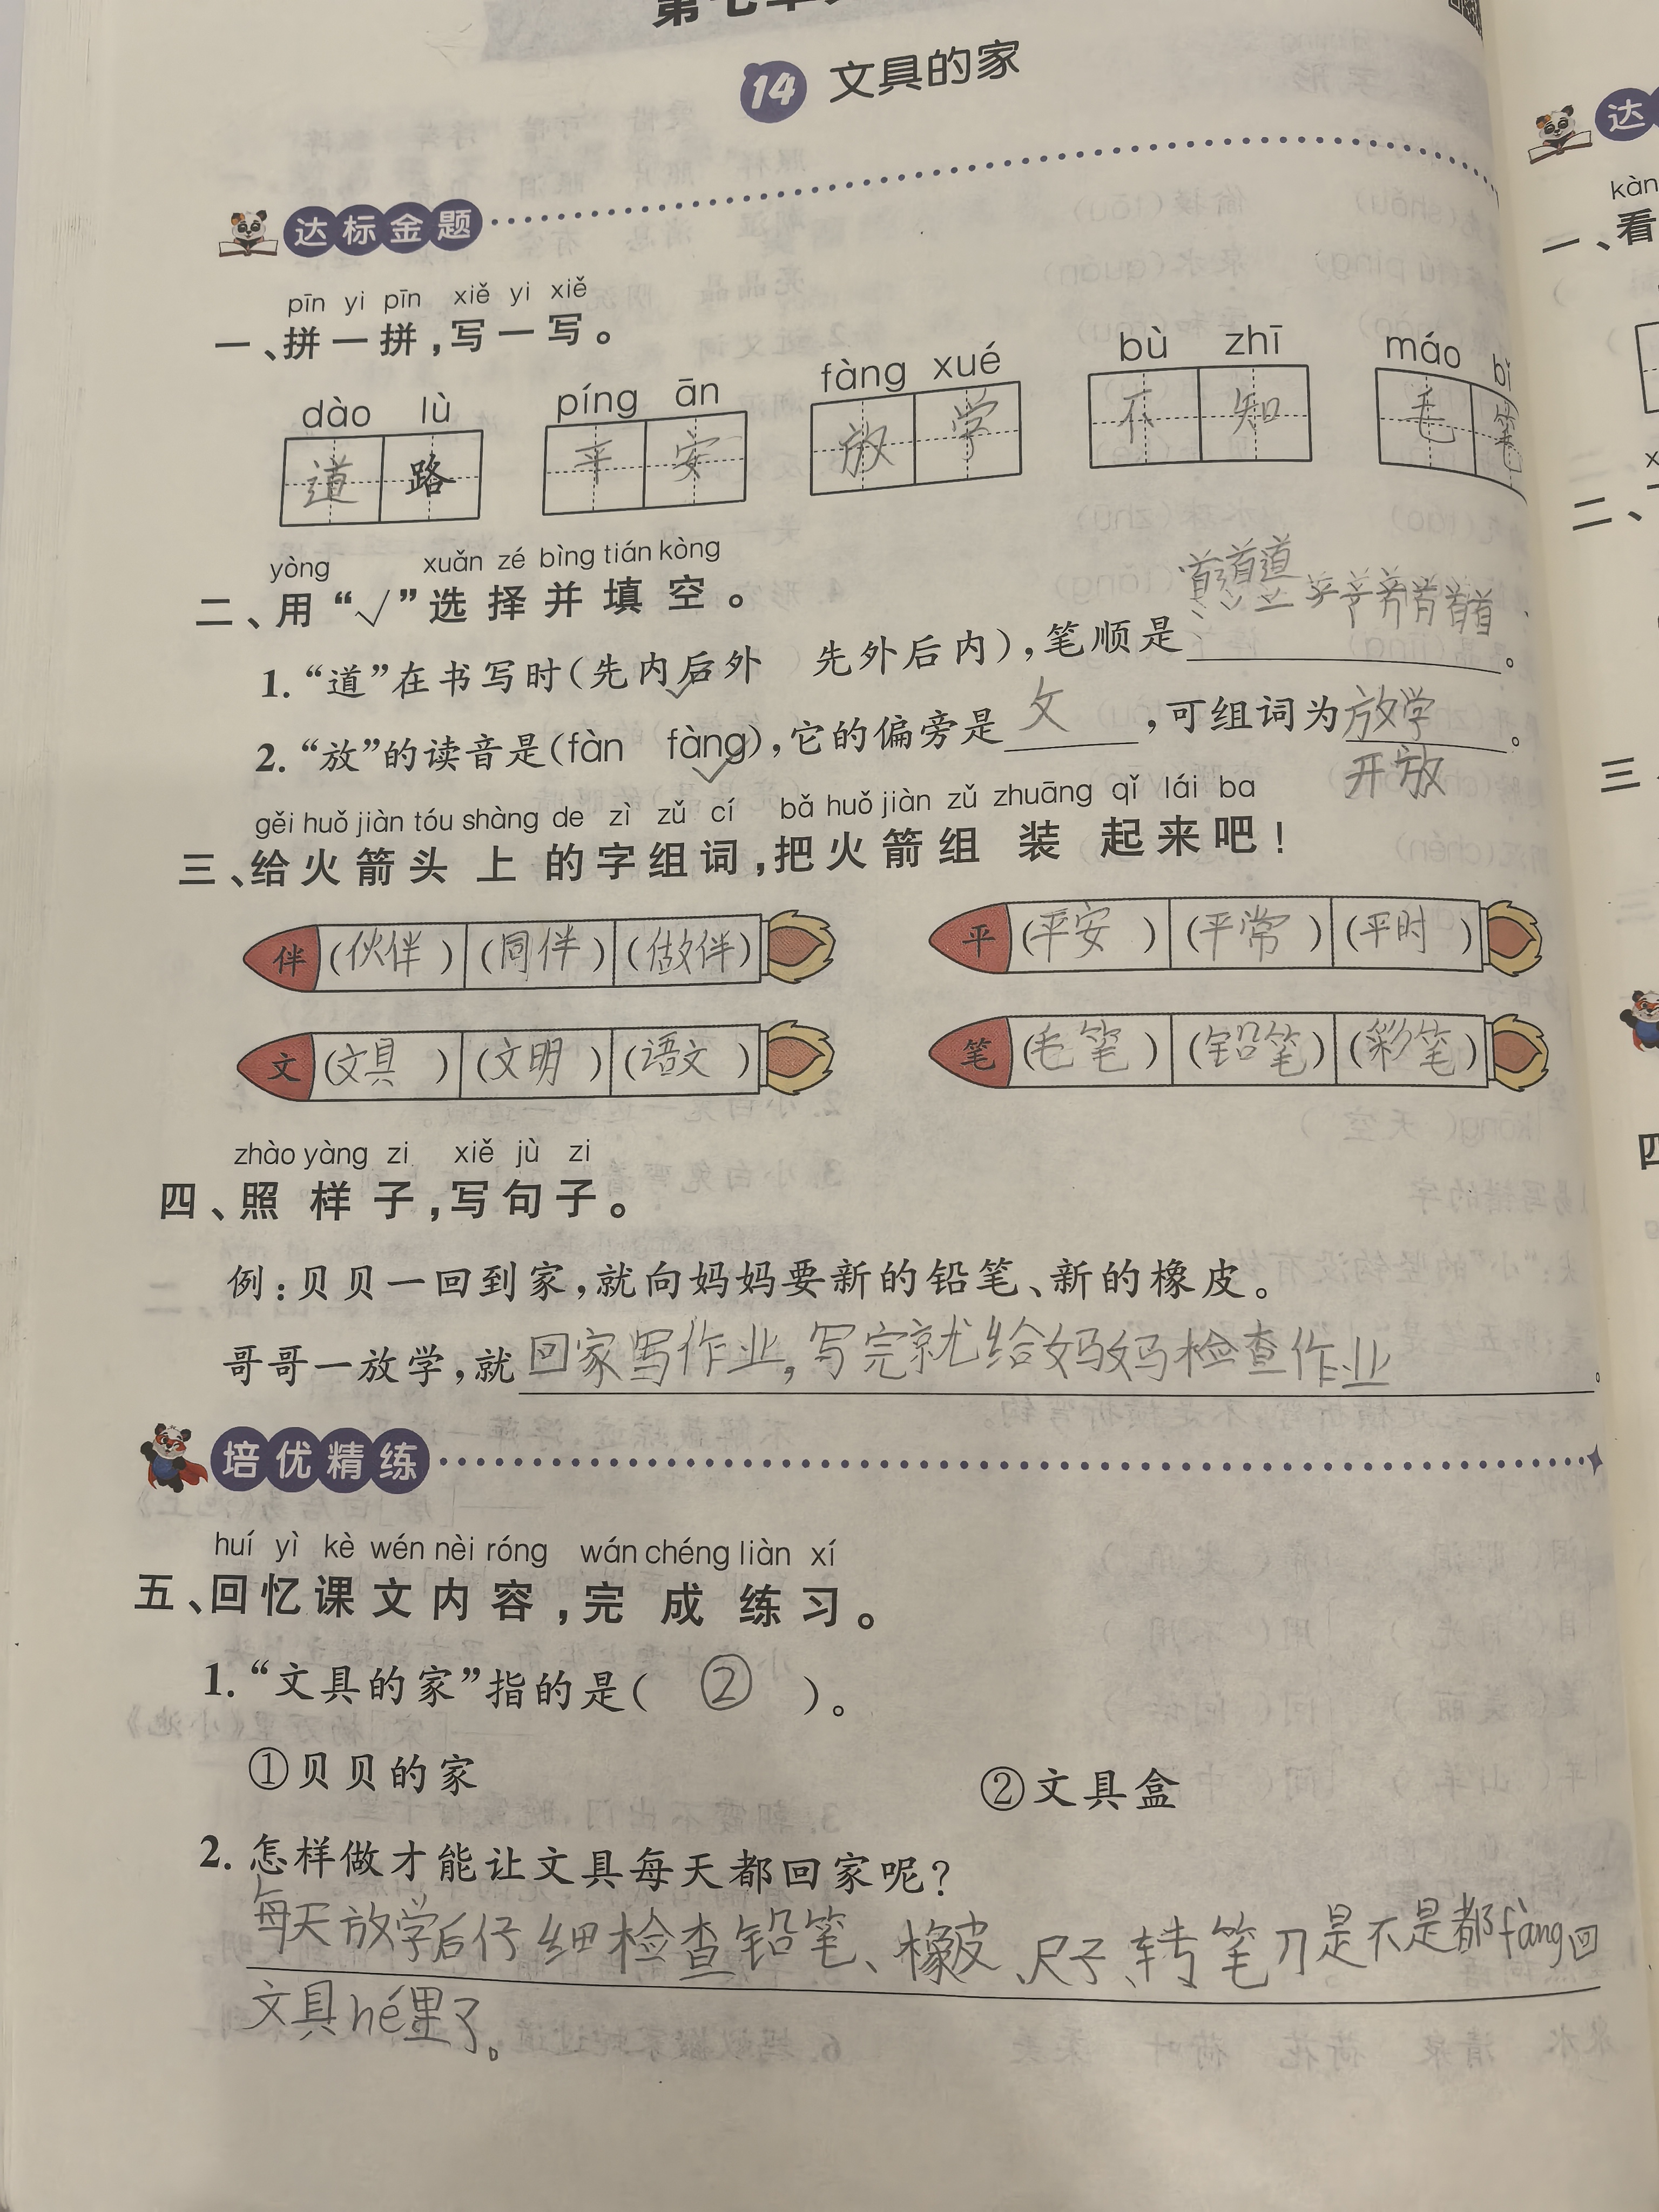 14 文具的家
达标金题
pīn yi pīn xiě yi xiě
一、拼一拼,写一写。
dào lù píng ān fàng xué bù zhī máo bǐ
道路 平安 放学 不知 毛笔
yòng xuǎn zé bìng tián kòng
二、用“√”选择并填空。
1. “道”在书写时(先内后外 先外后内),笔顺是
2. “放”的读音是(fàn fàng),它的偏旁是攵,可组词为放学。
开放
gěi huǒ jiàn tóu shàng de zì zǔ cí bǎ huǒ jiàn zǔ zhuāng qǐ lái ba
三、给火箭头上的字组词,把火箭组装起来吧!
伴(伙伴)(同伴)(做伴) 平(平安)(平常)(平时)
文(文具)(文明)(语文) 笔(毛笔)(铅笔)(彩笔)
zhào yàng zi xiě jù zi
四、照样子,写句子。
例:贝贝一回到家,就向妈妈要新的铅笔、新的橡皮。
哥哥一放学,就回家写作业,写完就给妈妈检查作业。
培优精练
huí yì kè wén nèi róng wán chéng liàn xí
五、回忆课文内容,完成练习。
1. “文具的家”指的是( ② )。
①贝贝的家 ②文具盒
2. 怎样做才能让文具每天都回家呢?
每天放学后仔细检查铅笔、橡皮、尺子、转笔刀是不是都fàng回
文具hé里了。
达
kàn
一、看
二、
三
四